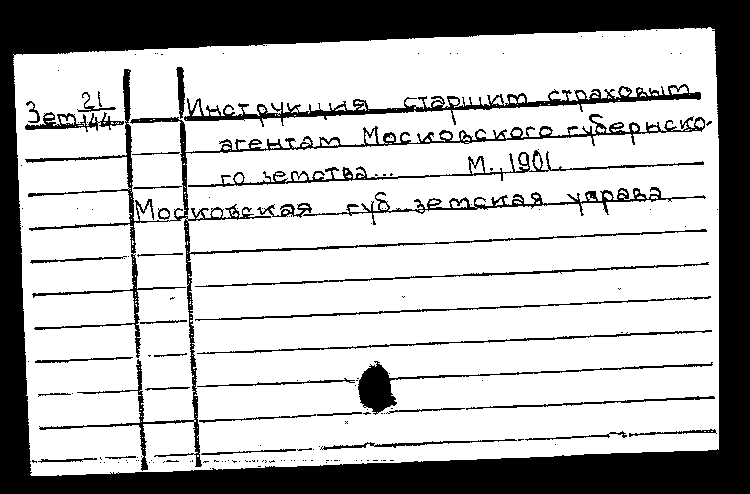 Зем 21/144 Инструкция старшим страховым
агентам Московского губернско-
го земства... М., 1901.
Московская губ. земская управа.